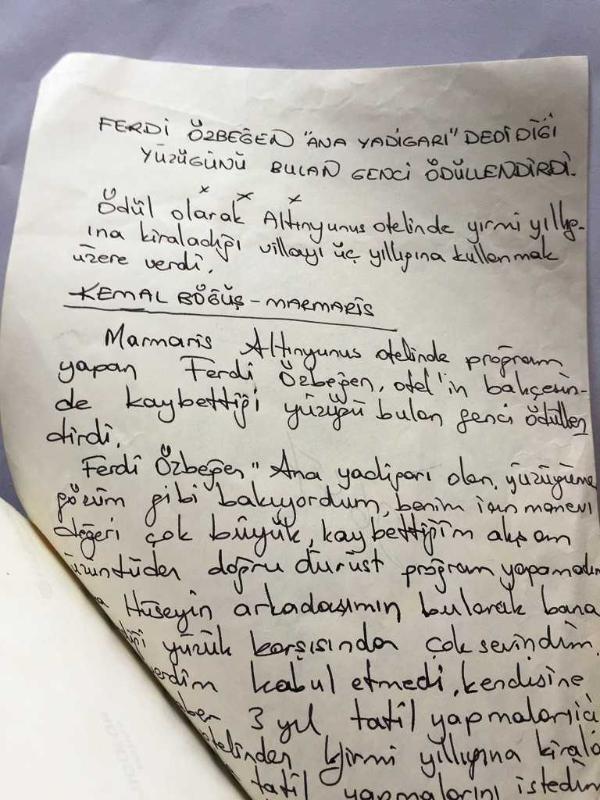 FERDİ ÖZBEĞEN "ANA YADİGARI" DEDİDİĞİ
YÜZÜĞÜNÜ BULAN GENCİ ÖDÜLLENDİRDİ.
x x x
Ödül olarak Altınyunus otelinde yırmi yıllığ-
ına kiraladığı villayı üç yıllığına kullanmak
üzere verdi.
KEMAL BÖĞÜŞ-MARMARİS
Marmaris Altınyunus otelinde proğram
yapan Ferdi Özbeğen, otel'in bahçesin-
de kaybettiği yüzüğü bulan genci ödüllen
dirdi.
Ferdi Özbeğen" Ana yadigarı olan, yüzüğüme
gözüm gibi bakıyordum, benim için manevi
değeri çok büyük, kaybettiğim akşam
üzüntüden doğru dürüst proğram yapamadım
Hüseyin arkadaşımın bularak bana
yüzük karşısında çok sevindim.
kabul etmedi, kendisine
3 yıl tatil yapmaları
otelinden yirmi yıllığına kirala
tatil yapmalarını istedim